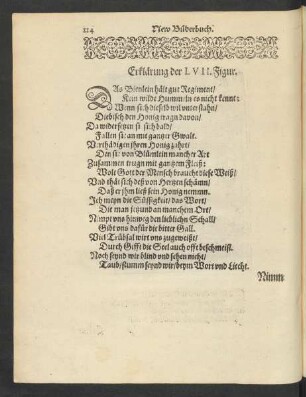 114 New Bilderbuch.
Erklärung der LVII. Figur.
DAs Bienlein hält gut Regiment/
Kein wilde Hummel es nicht kennt:
Wenn sich dieselb wil unterstahn/
Diebisch den Honig tragn davon/
Da widersetzen sie sich bald/
Fallen sie an mit gantzer Gwalt.
Verthädigen ihren Honig zahrt/
Den sie von Blümlein mancher Art
Zusammen tragn mit gantzem Fleiß:
Wolt Gott der Mensch braucht diese Weiß/
Und thät sich deß von Hertzen schämn/
Daß er ihm ließ sein Honig nemmn.
Ich meyn die Süssigkeit/ das Wort/
Die man jetzund an manchem Ort/
Nimpt uns hinweg den lieblichn Schall/
Gibt uns dafür die bitter Gall.
Viel Trübsal wirt uns zugeweißt/
Durch Gifft die Seel auch offt beschmeist.
Noch seynd wir blind und sehen nicht/
Taub/ stumm seynd wir/ beym Wort und Liecht.
Nimm